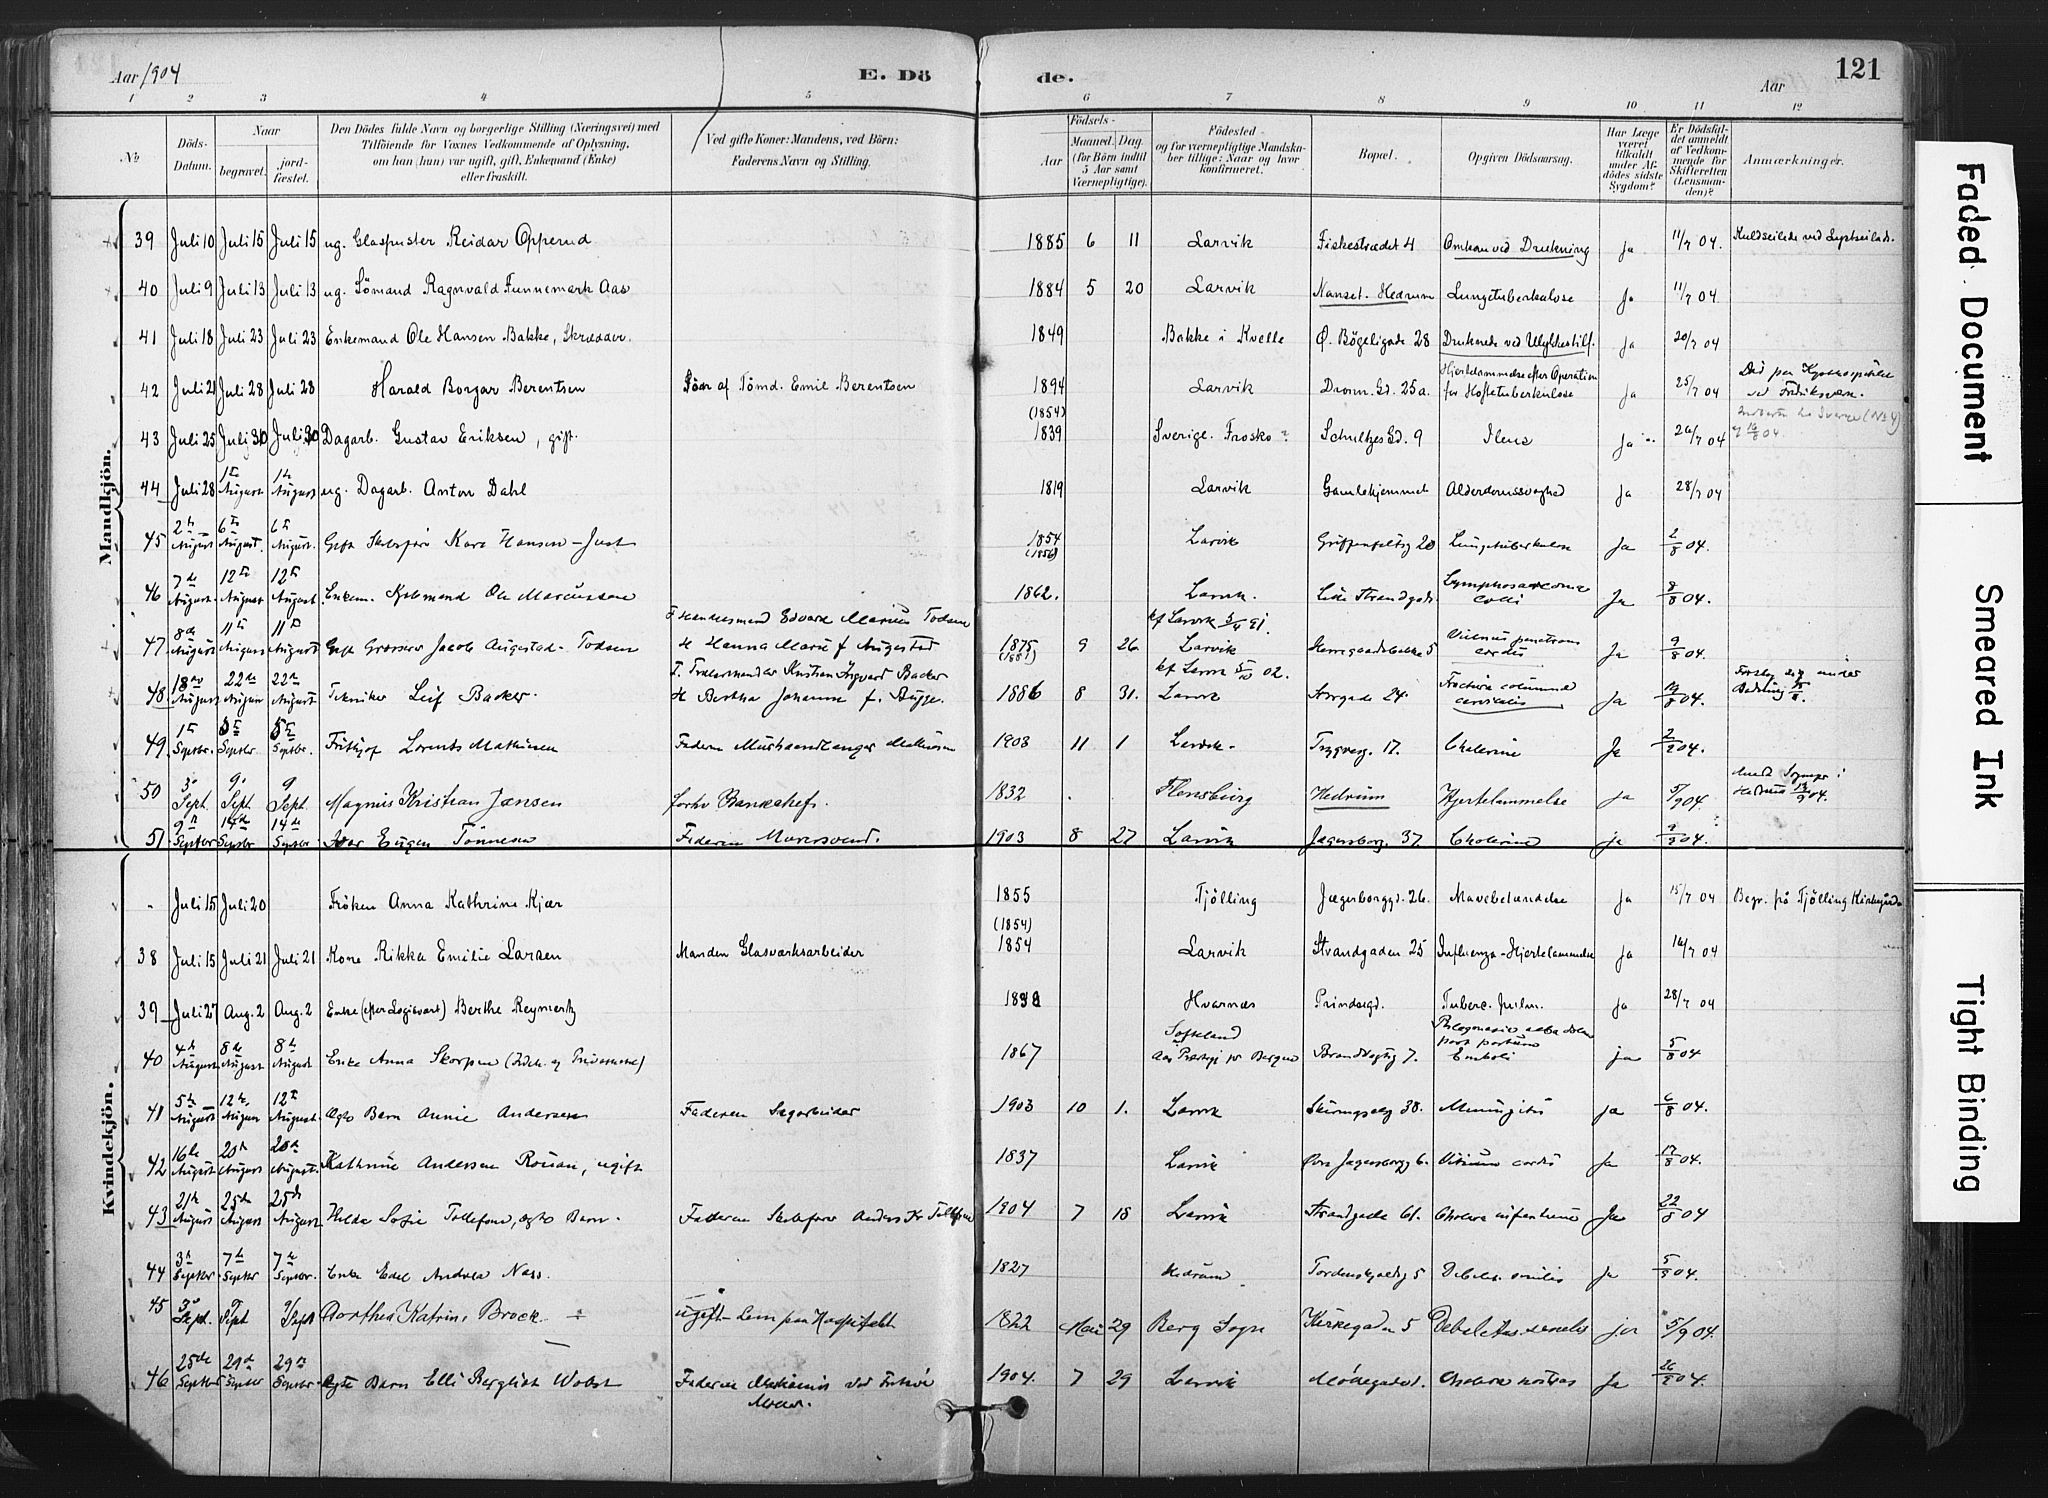 Aar 1904
E. Döde.
Aar
121
1 2 3 4 5 6 7 8 9 10 11 12
No
Döds-Datum.
Naar
begravet.
jord-fæstet.
Den Dödes fulde Navn og borgerlige Stilling (Næringsvei) med
Tilföiende for Voxnes Vedkommende af Oplysning,
om han (hun) var ugift, gift, Enkemand (Enke)
eller fraskilt.
Ved gifte Koner: Mandens, ved Börn:
Faderens Navn og Stilling.
Födsels-
Aar
Maaned. Dag.
(for Börn indtil
5 Aar samt
Værnepligtige).
Födested
og for værnepligtige Mandska-
ber tillige: Naar og hvor
konfirmeret.
Bopæl.
Opgiven Dödsaarsag.
Har Læge
været
tilkaldt
under Af-
dödes sidste
Sygdom?
Er Dödsfal-
det anmeldt
af Vedkom-
mende for
Skifteretten
(Lensman-
den)?
Anmærkninger.
Mandkjön.
39 Juli 10 Juli 15 Juli 15 ug. Glaspuster Reidar Opperud 1885 6 11 Larvik Fiskestrædet 4 Omkom ved Drukning Ja 11/7 04. Kuldseilede ved Lystseilads.
40 Juli 9 Juli 13 Juli 13 ug. Sömand Ragnvald Funnemark Aas 1884 5 20 Larvik Nanset. Hedrum Lungetuberkulose Ja 11/7 04.
41 Juli 18 Juli 23 Juli 23 Enkemand Ole Hansen Bakke, Skrædder. 1849 Bakke i Kvelle Ø. Bögeligade 28 Druknede ved Ulykkestilf. Ja 20/7 04
42 Juli 21 Juli 28 Juli 28 Harald Borgar Berentsen Sön af Tömd. Emil Berentsen 1894 Larvik Dronn. Gd. 25a. Hjertelammelse efter Operation
for Hoftetuberkulose Ja 25/7 04 Död paa Kysthospitalet
ved Fredriksværn.
43 Juli 25 Juli 30 Juli 30 Dagarb. Gustav Eriksen, gift. (1854)
1839 Sverige. Frosko? Schultzes Gd. 9 Ileus Ja 26/7 04
44 Juli 28 1ste August 1ste August ug. Dagarb. Anton Dahl 1819 Larvik Gamlehjemmet Alderdomssvaghed Ja 28/7 04
45 2de August 6te August. 6te August. Gift Skibsförer Karl Hansen-Just 1854
(1856) Larvik Griffenfeldtsg 20 Lungetuberkulose Ja 2/8 04.
46 7de August. 12te August 12te August Enkem. Kjöbmand Ole Marcussen 1862. Larvik. Lille Strandgade. Lymphosarcoma
colli Ja 8/8 04.
47 8de August 11te August 11te August Gift Grosserer Jacob Augestad-Todsen Edvard Marius Todsen
& Hanna Marie f. Augestad 1875
(1881) 9 26 kf Larvik 5/4 91.
Larvik Herregaardsbakke 5 Vulnus penetrans
cordis Ja 9/8 04.
48 18de August 22de August 22de August Tekniker Leif Backer. F. Trælasthandler Kristian Ingvard Backer
& Bertha Johanne f. Bugge. 1886 8 31. kf Larvik 5/10 02.
Larvik Storgade 24. Fractura columnae
cervicalis Ja 19/8 04. under
Badning
49 1ste Septbr. 5te Septbr 5te Septbr. Frithjof Lorents Mathisen Faderen Murhaandlanger Mathisen 1903 11 1 Larvik. Trygveg. 17. Cholerine Ja 2/9 04.
50 3. Sept. 9. Sept. 9 Sept. Magnus Kristian Jansen forhv Bankchef. 1832 Flensburg Hedrum Hjertelammelse ja 5/9 04. Hedrum 04.
51 9de Septbr 14de Septbr 14de Septbr. Ivar Eugen Tönnesen Faderen Murersvend. 1903 8 27 Larvik Jegersborg. 37. Cholerine ja 9/9 04.
Kvindekjön.
- Juli 15 Juli 20 Fröken Anna Kathrine Kjær 1855 Tjölling Jægerborgd. 26. Mavebetændelse Ja 15/7 04 Begr. på Tjölling Kirkegård
38 Juli 15 Juli 21 Juli 21 Kone Rikka Emilie Larsen Manden Glasværksarbeider (1854)
1854 Larvik Strandgaden 25 Influenza-Hjertelammelse Ja 16/7 04
39 Juli 27 Aug. 2 Aug. 2 Enke (efter Logisvært) Berthe Reymertz Hvarnæs Prindsegd. Tuberc. pulm. ja 28/7 04
40 4de August 8de August 8de August Enke Anna Skorpen 1867 Softeland
Brandvagtsg 7. Phlegmasia alba dolens
post partum
Emboli ja 5/8 04
41 5te August 12te August 12te August Ægte Barn Annie Andersen Faderen Sagarbeider 1903 10 1. Larvik 38. Meningitis ja 6/8 04.
42 16de August 20de August 20de August. Kathrine Andersen Rouan, ugift 1837 Larvik Övre Jegersborgg 6. Vitium cordis Ja 17/8 04.
43 21de August 25de August 25de August Hilda Sofie Tollefsen, ægte Barn. Faderen Skibsförer Anders Kr Tollefsen 1904 7 18 Larvik Strandgade 61. Cholera infantum Ja 22/8 04
44 3de Septbr 7de Septbr 7de Septbr. Enke Edel Andrea Nass. 1827 Hedrum Tordenskjoldsg 5 Debilit. senilis Ja 5/9 04.
45 3. Sept. 9 Sept 9/Sept Dorthea Katrine Brock ugift Lem paa Hospitalet 1822 Mai 29 Berg Sogn Kirkegaden 5 Debelitas senelis ja 5/9 04.
46 25de Septbr 29de Septbr 29de Septbr. Ægte Barn Elli Bergliot Wolst Faderen Maskinist ved Fritzöe
1904. 7 29 Larvik Mödegaden. Cholera nostras Ja 26/9 04.
Faded Document
Smeared Ink
Tight Binding